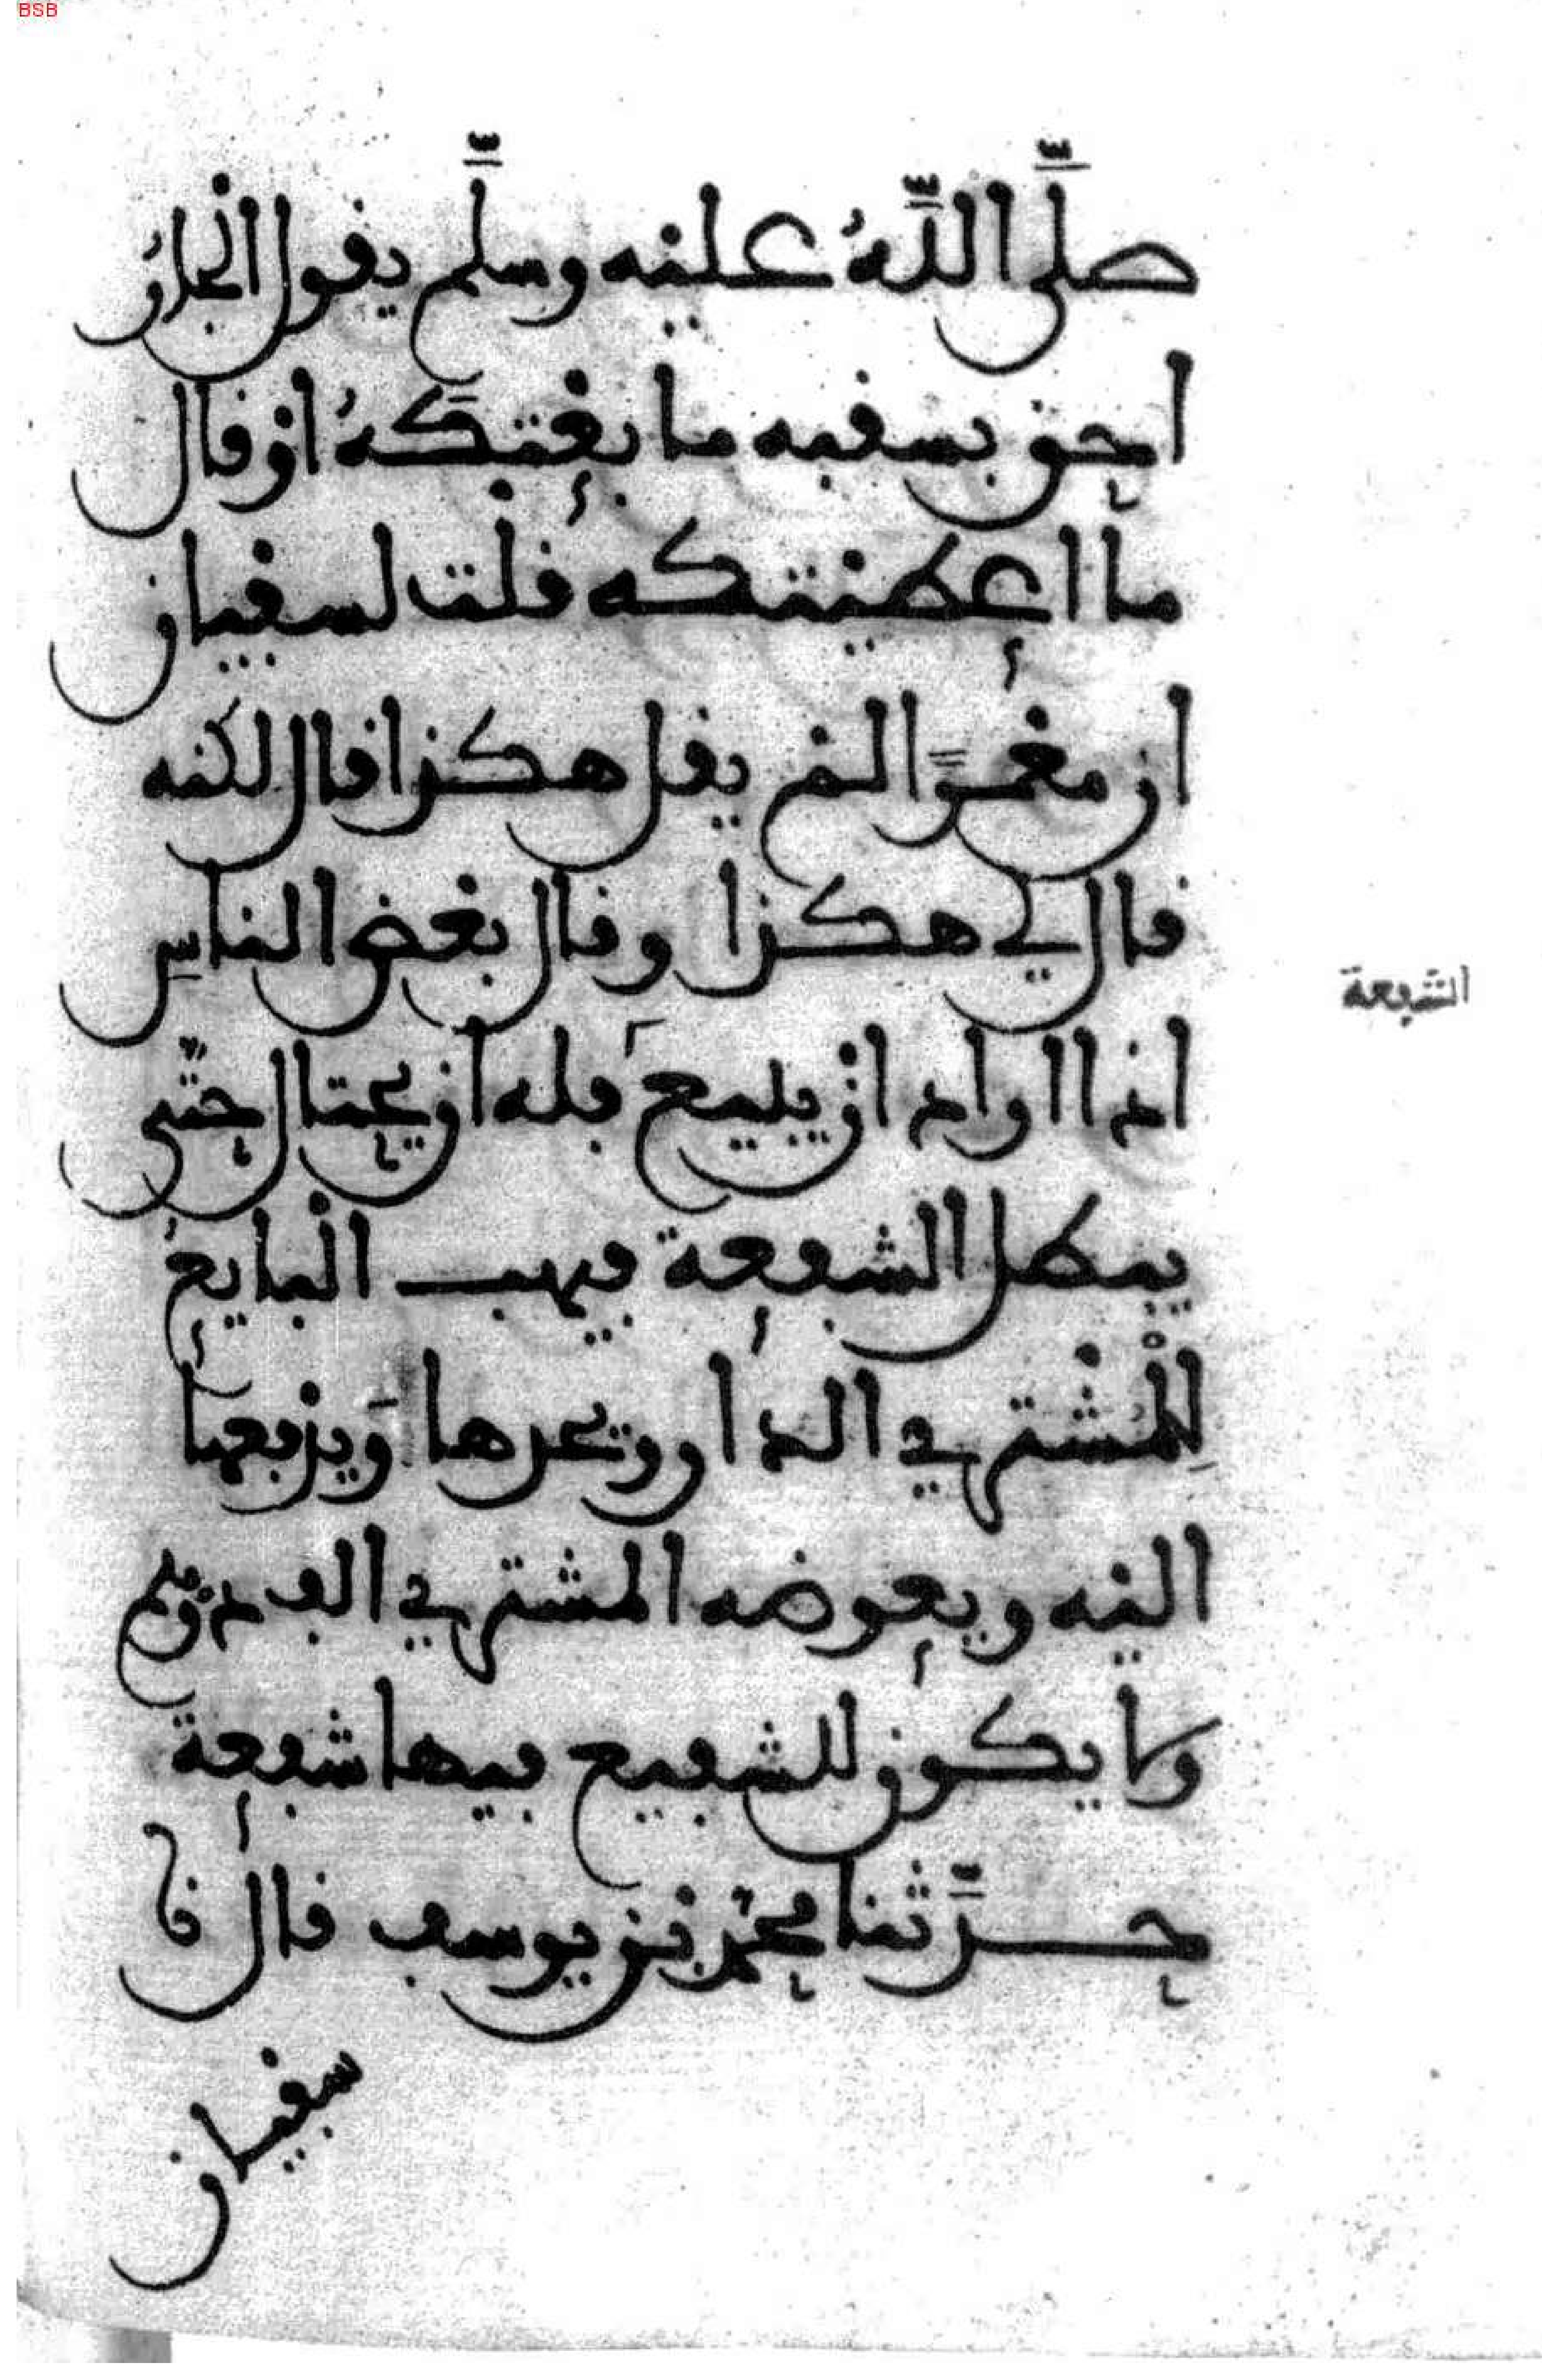 BSB
صلَّى اللَّهُ عليْه وسلَّم يقول الْجارُ
احق بسقبه ما بعْتكَهُ اوْ قال
ما اعْطيْتكه قلْت لسفْيان
ان معْمرًا لمْ يقل هكذا قال لكنه
قال لي هكذا وقال بعْض الناسِ
الشفعة
اذا اراد ان يبيع فله ان يحتال حتّى
يبطل الشفعة فيهب الْبايعُ
لِلْمُشْتري الدار ويحدها وَيدْفعها
اليْه ويعوضه المشتري الف درْهم
ولا يكون للشفيع فيها شفعة
حدَّثنا محمَّد بْن يوسف قال نا
سفيان